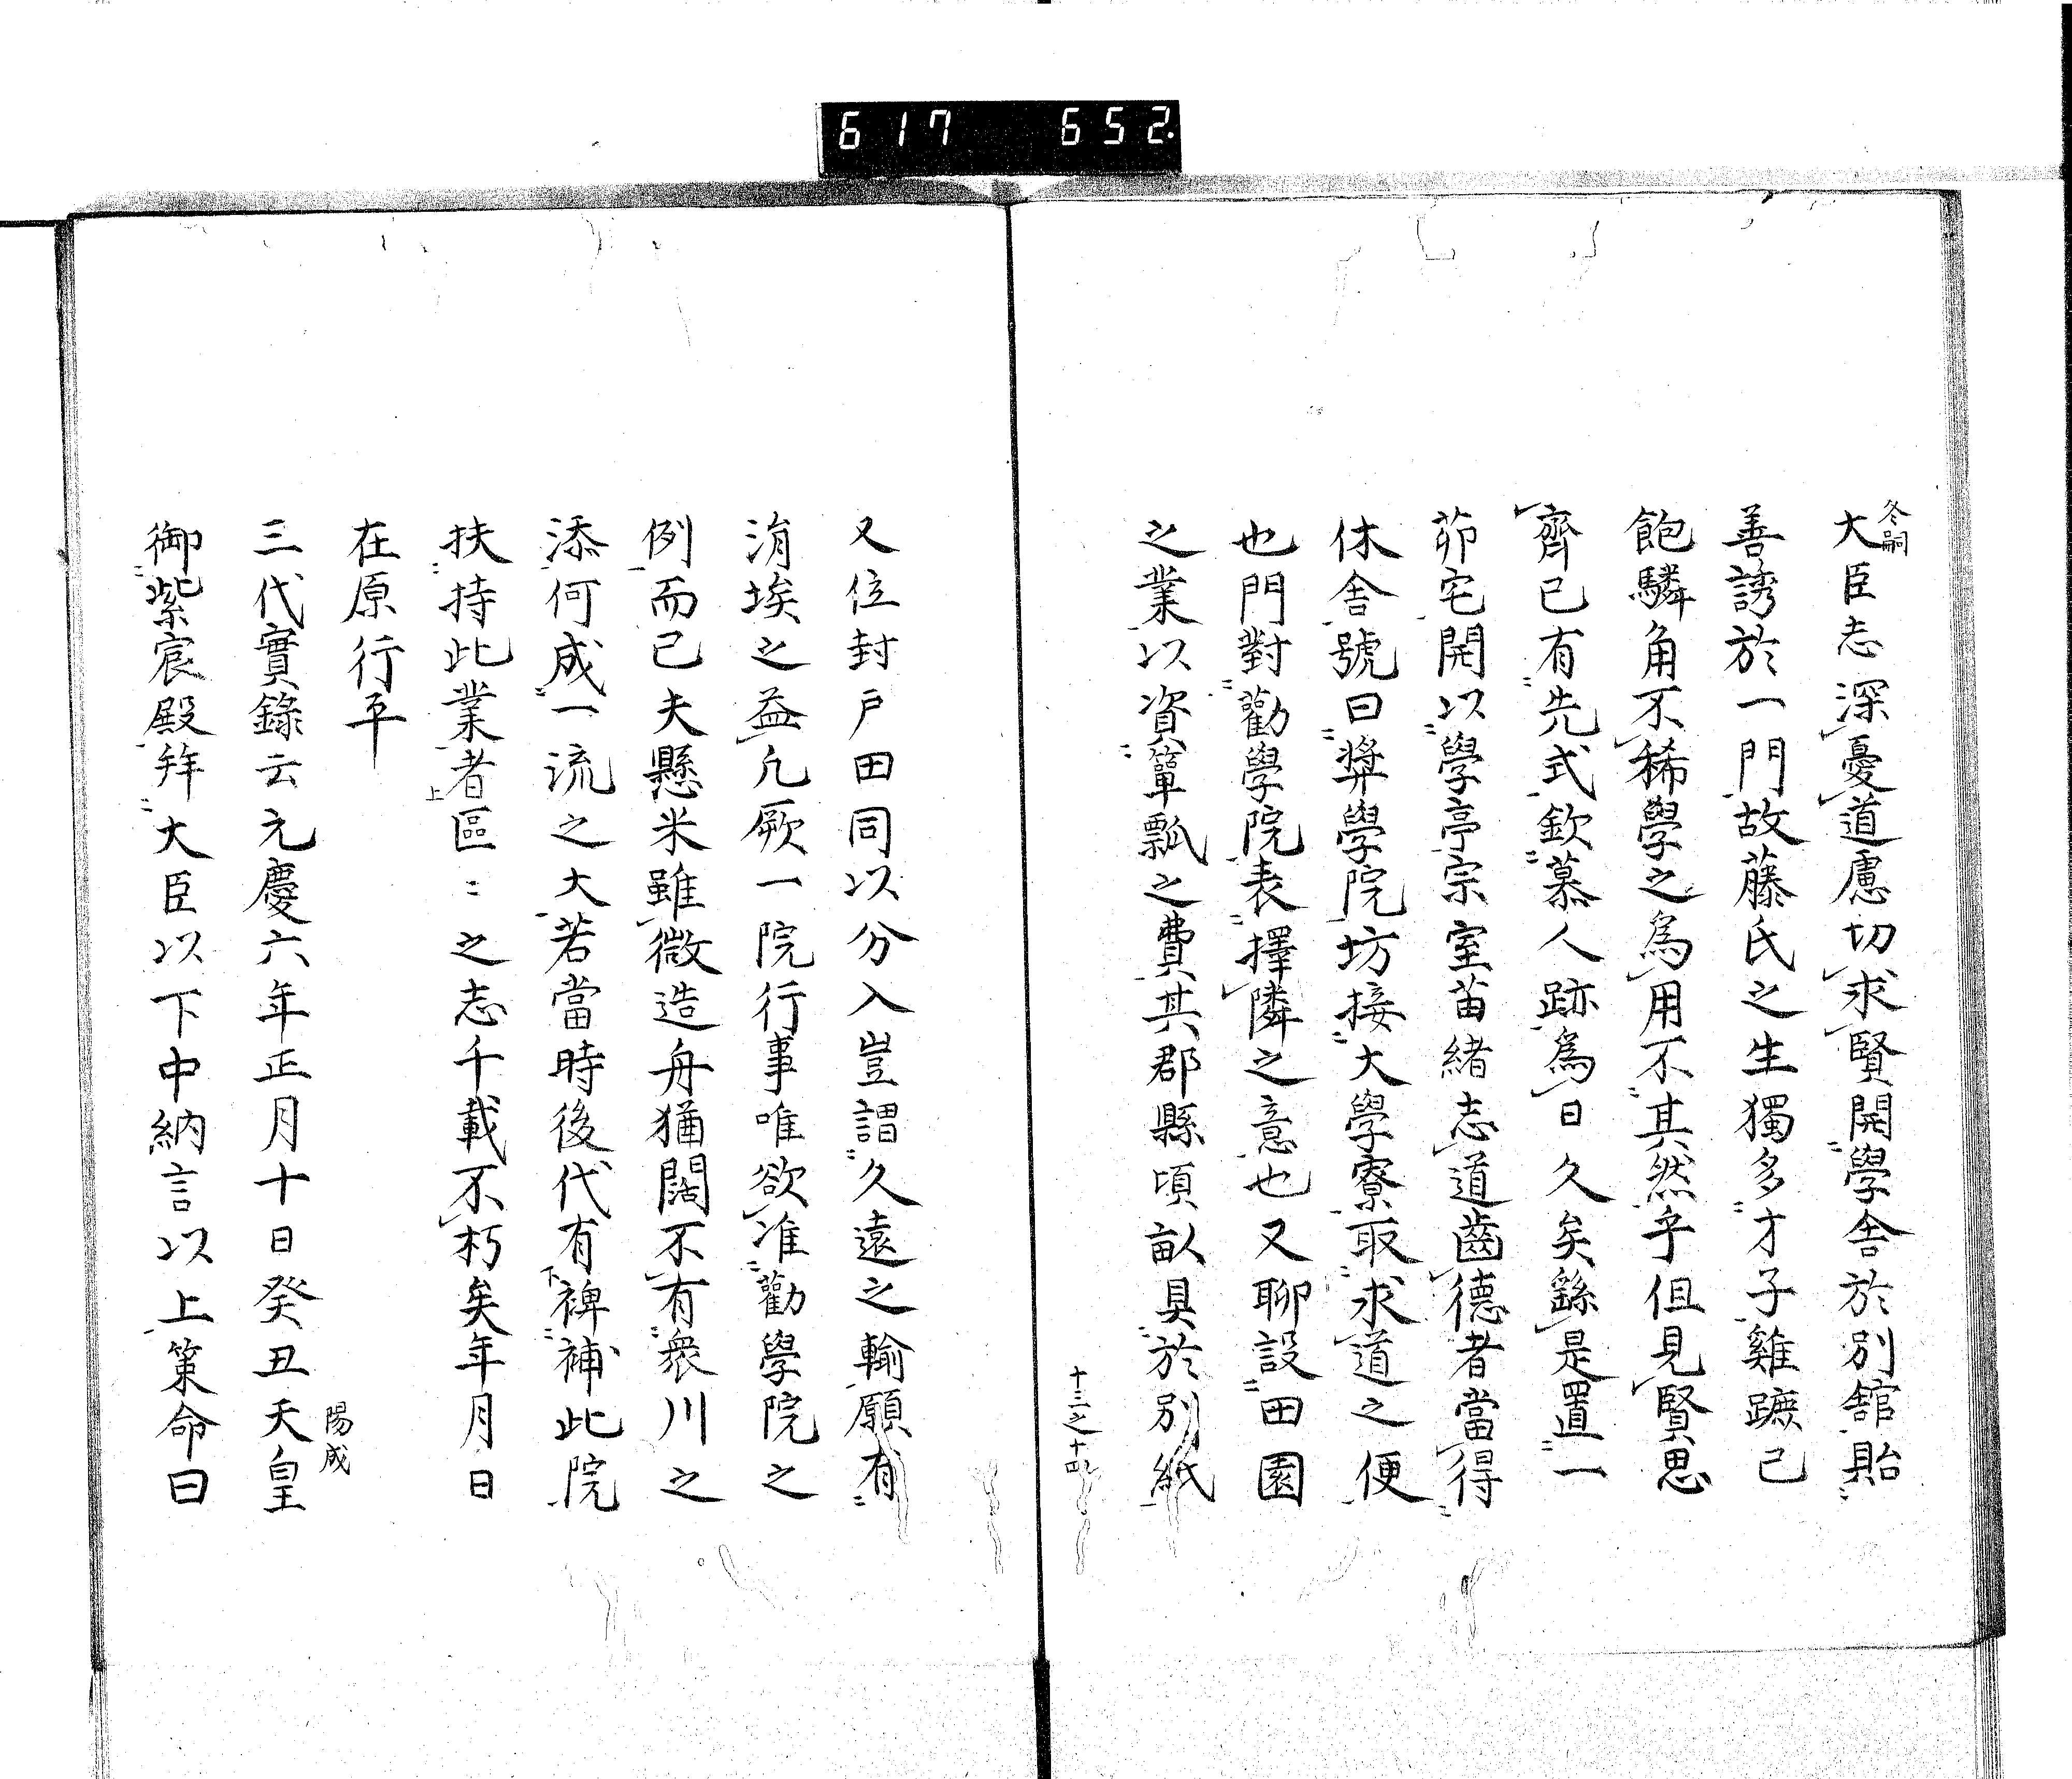 617 652.
冬嗣
大臣志深憂道慮切求賢開學舎於別舘貽
善誘於一門故藤氏之生獨多才子雞蹠已
飽驎角不稀學之為用不其然乎但見賢思
齊已有先式欽慕人跡為日久矣繇是置一
茆宅開以學亭宗室苗緒志道齒德者當得
休舎號曰奨學院坊接大學寮取求道之便
也門對勸學院表擇隣之意也又聊設田園
之業以資簞瓢之費其郡縣頃畝具於別紙
十三之十四
又位封戸田同以分入豈謂久遠之輸願有
涓埃之益凡厥一院行事唯欲准勸學院之
例而已夫懸米雖微造舟猶闊不有衆川之
添何成一流之大若當時後代有裨補此院
下
扶持此業者區〻之志千載不朽矣年月日
上
在原行平
三代實錄云元慶六年正月十日癸丑天皇
陽成
御紫宸殿拜大臣以下中納言以上策命曰